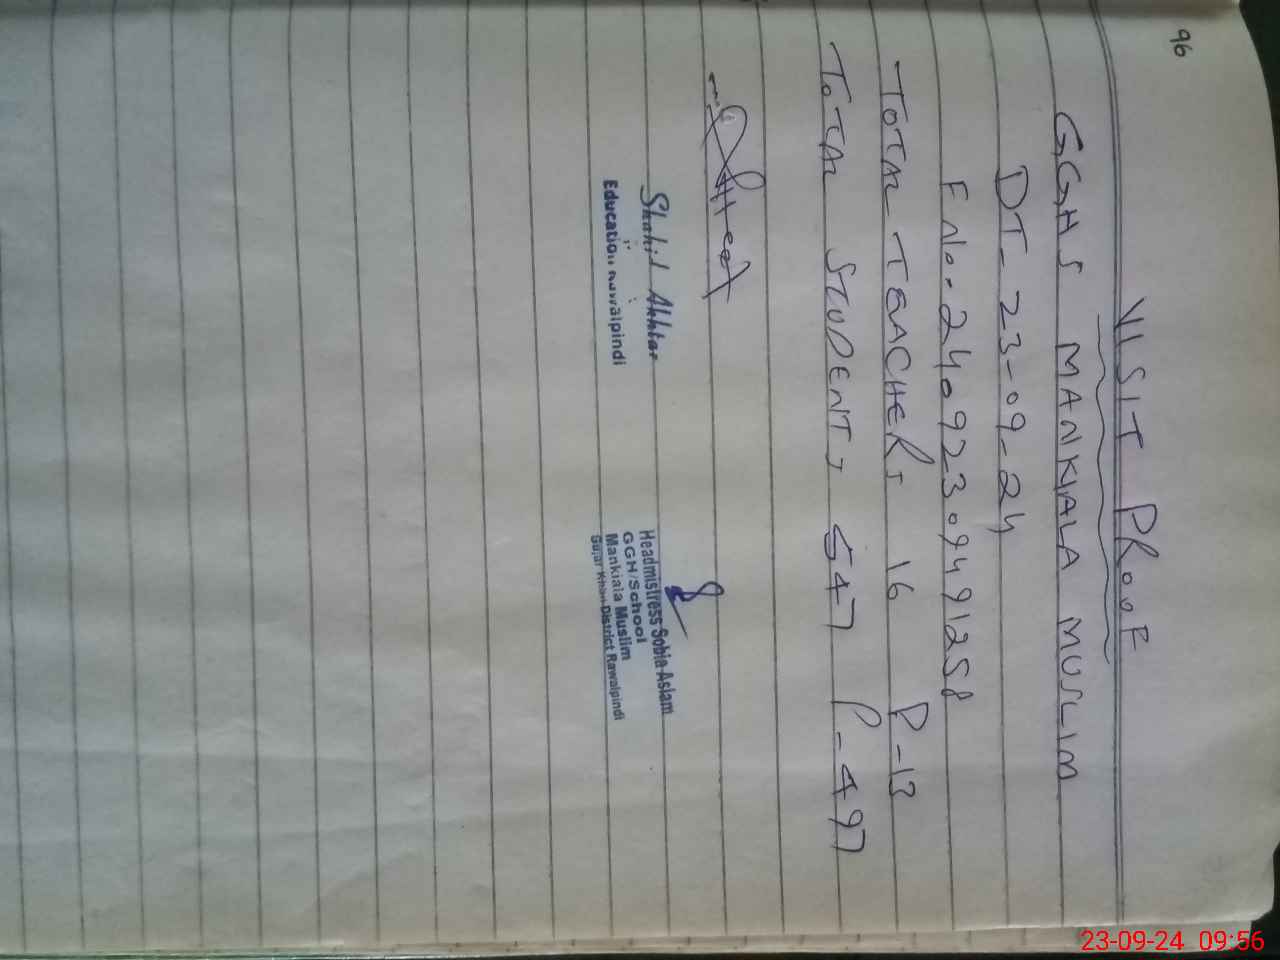 96
VISIT PROOF
GGHS MANKIALA MUSLIM
DT- 23-09-24
F No- 24092309491258
TOTAL TEACHERS 16 P-13
TOTAL STUDENTS 547 P-497
Shahid Akhtar
Education Rawalpindi
Headmistress Sobia Aslam
GGH/School
Mankiala Muslim
Gujar Khan District Rawalpindi
23-09-24 09:56